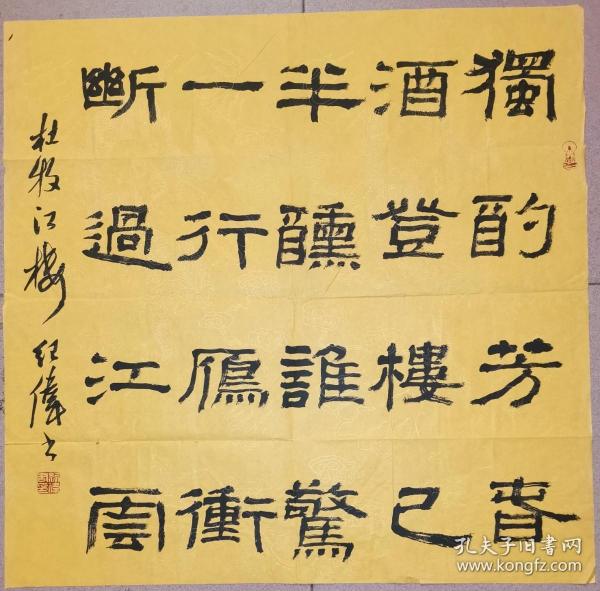 獨酌芳春
酒登樓已
半醺誰驚
一行鴈衝
斷過江雲
杜牧江楼 纪偉书
孔夫子旧书网
www.kongfz.com